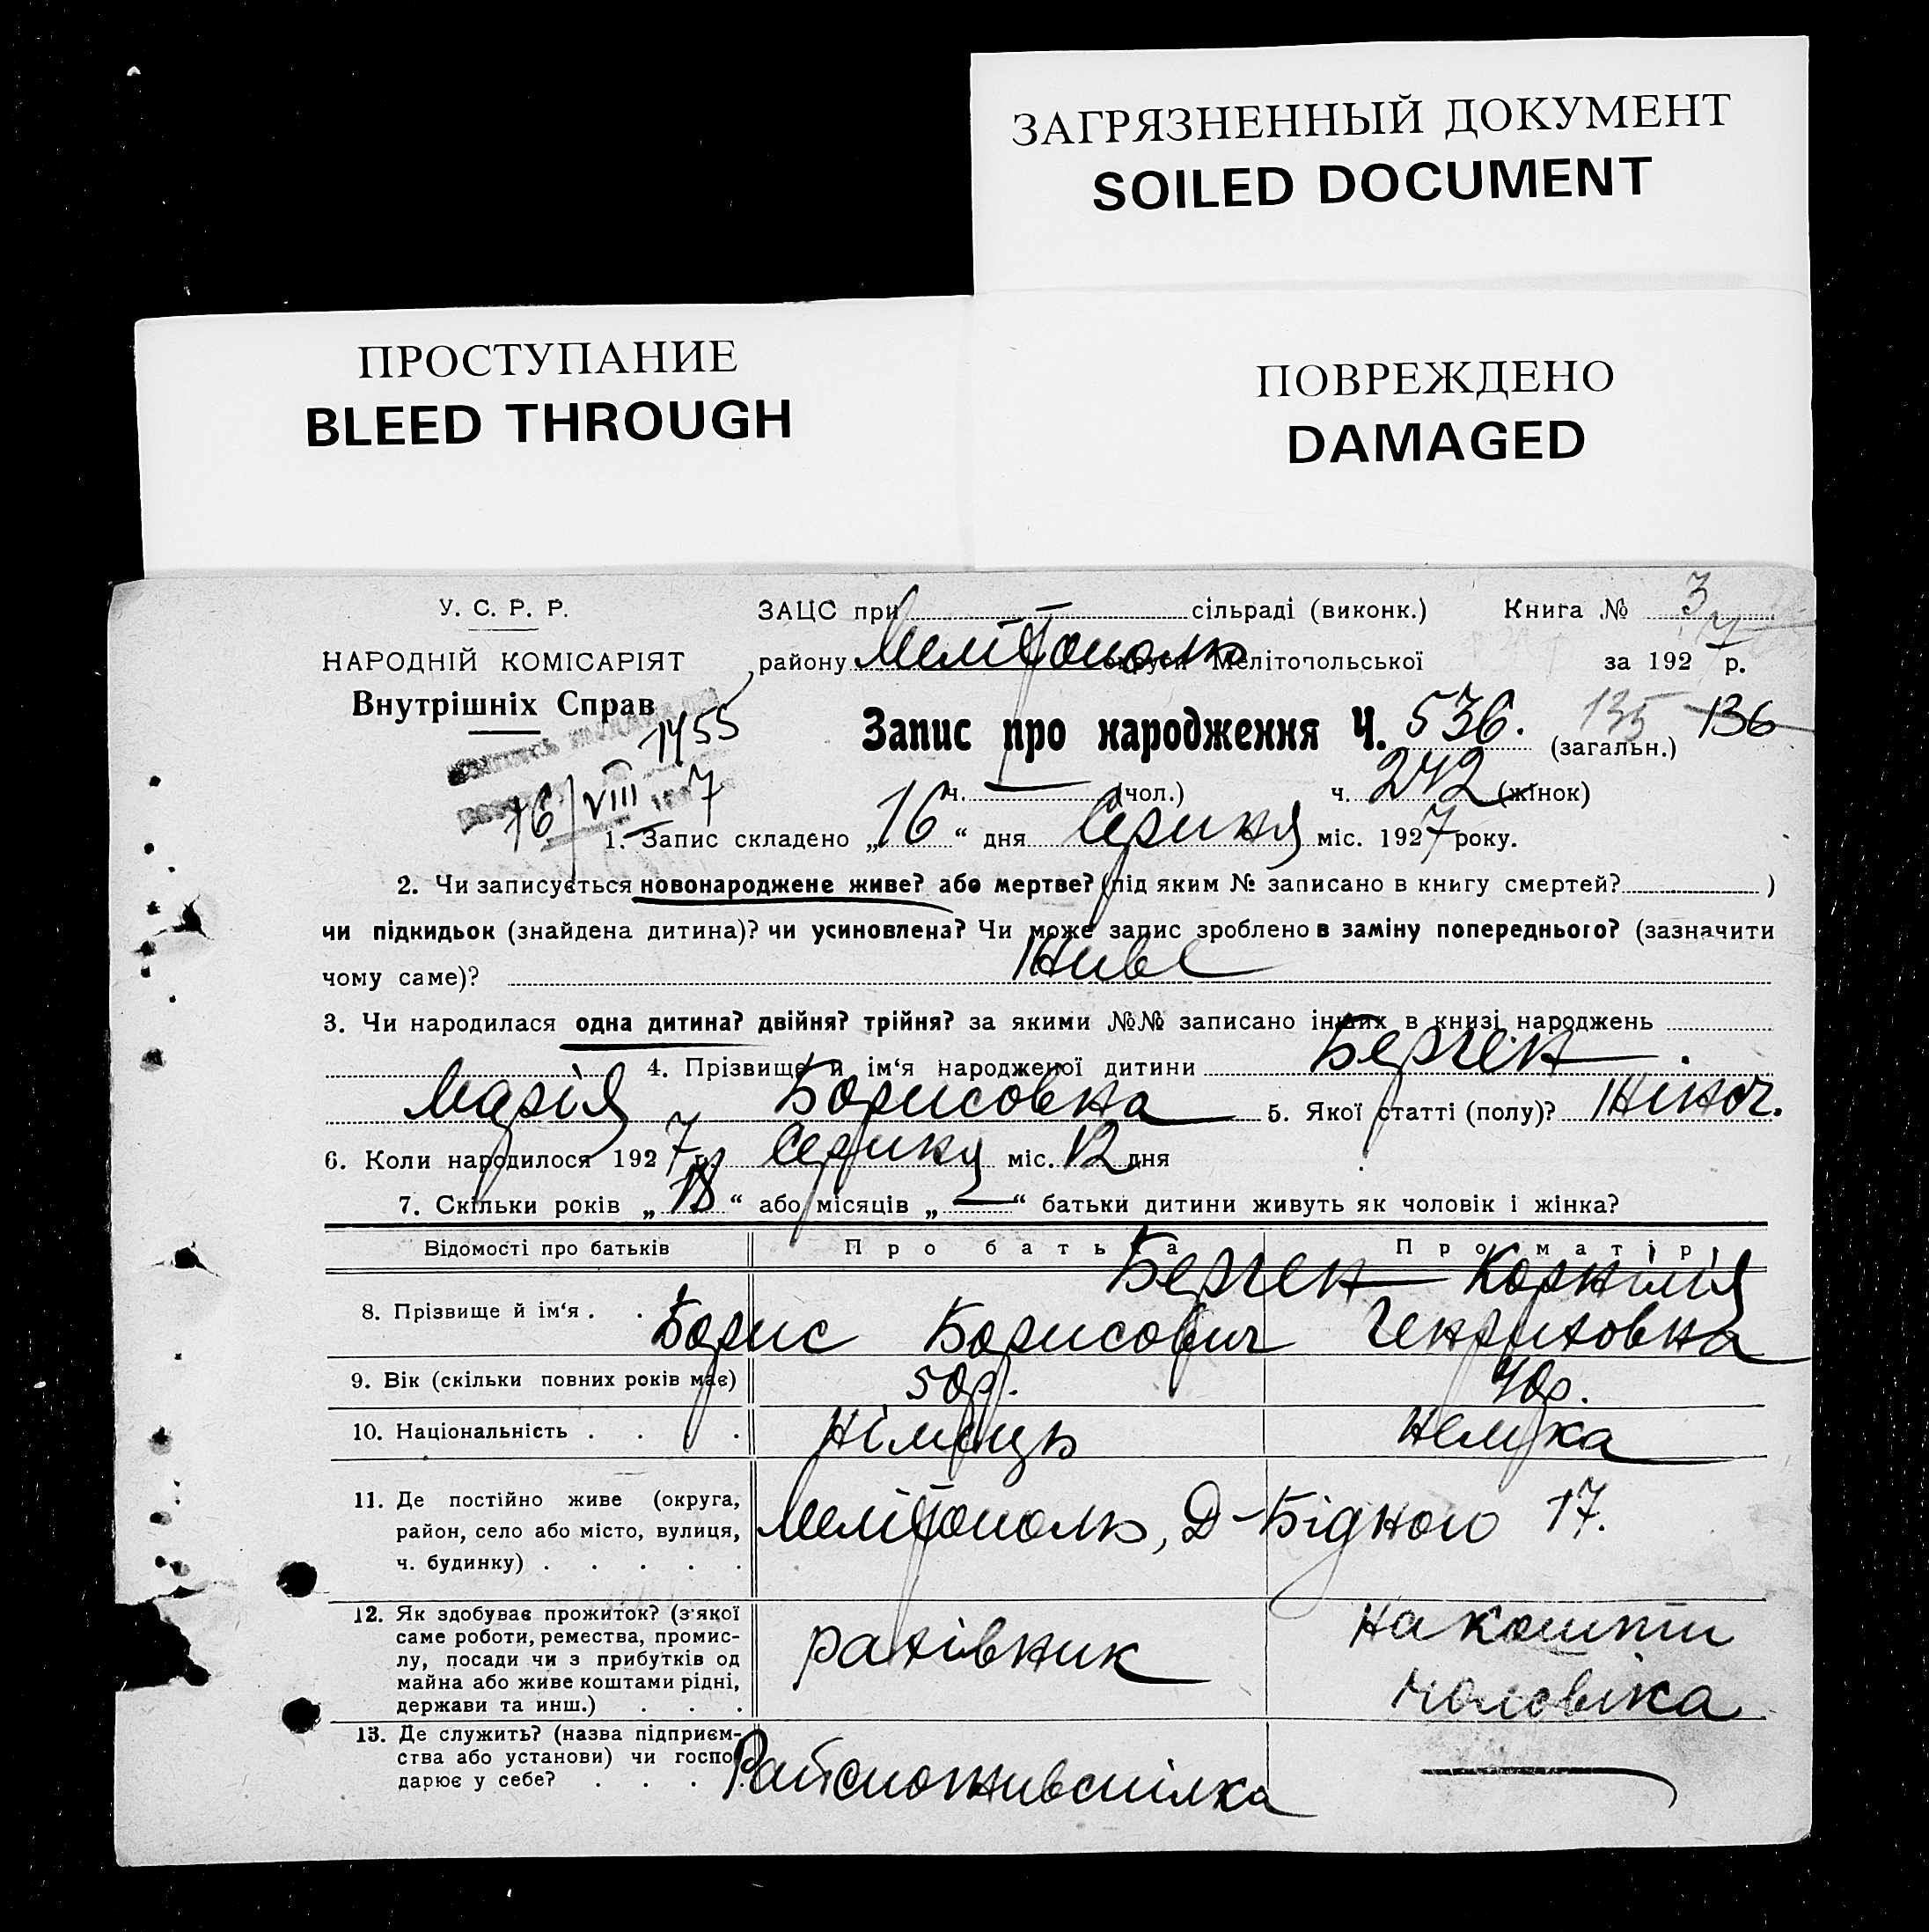 ЗАГРЯЗНЕННЫЙ ДОКУМЕНТ
SOILED DOCUMENT
ПРОСТУПАНИЕ
BLEED THROUGH
ПОВРЕЖДЕНО
DAMAGED
У. С. Р. Р.
НАРОДНІЙ КОМІСАРІЯТ
Внутрішніх Справ
1455
16/VIII 7
ЗАЦС при сільраді (виконк.) Книга № 3
району Мелітополь округи Мелітопольської за 1927 р.
Запис про народження Ч. 536. (загальн.) 135 136
ч. — (чол.) ч. 242 (жінок)
1. Запис складено „16“ дня Серпня міс. 1927 року.
2. Чи записується новонароджене живе? або мертве? (під яким № записано в книгу смертей? )
чи підкидьок (знайдена дитина)? чи усиновлена? Чи може запис зроблено в заміну попереднього? (зазначити
чому саме)? Живе
3. Чи народилася одна дитина? двійня? трійня? за якими №№ записано інших в книзі народжень
4. Прізвище й ім‘я народженої дитини Берген.
Марія Борисовна 5. Якої статті (полу)? Жіноч.
6. Коли народилося 1927 р. Серпня міс. 12 дня
7. Скільки років „18“ або місяців „—“ батьки дитини живуть як чоловік і жінка?
Відомості про батьків Про батька Про матір
8. Прізвище й ім‘я . . Берген Корнілія
Борис Борисович Генриховна
9. Вік (скільки повних років має) 50р. 40р.
10. Національність . . . німець немка
11. Де постійно живе (округа,
район, село або місто, вулиця,
ч. будинку) . . . . . Мелітополь, Д-Бідного 17.
12. Як здобуває прожиток? (з якої
саме роботи, ремества, промис-
лу, посади чи з прибутків од
майна або живе коштами рідні,
держави та инш.) . . . рахівник на кошти
чоловіка
13. Де служить? (назва підприєм-
ства або установи) чи госпо-
дарює у себе? . . . Райспоживспілка —